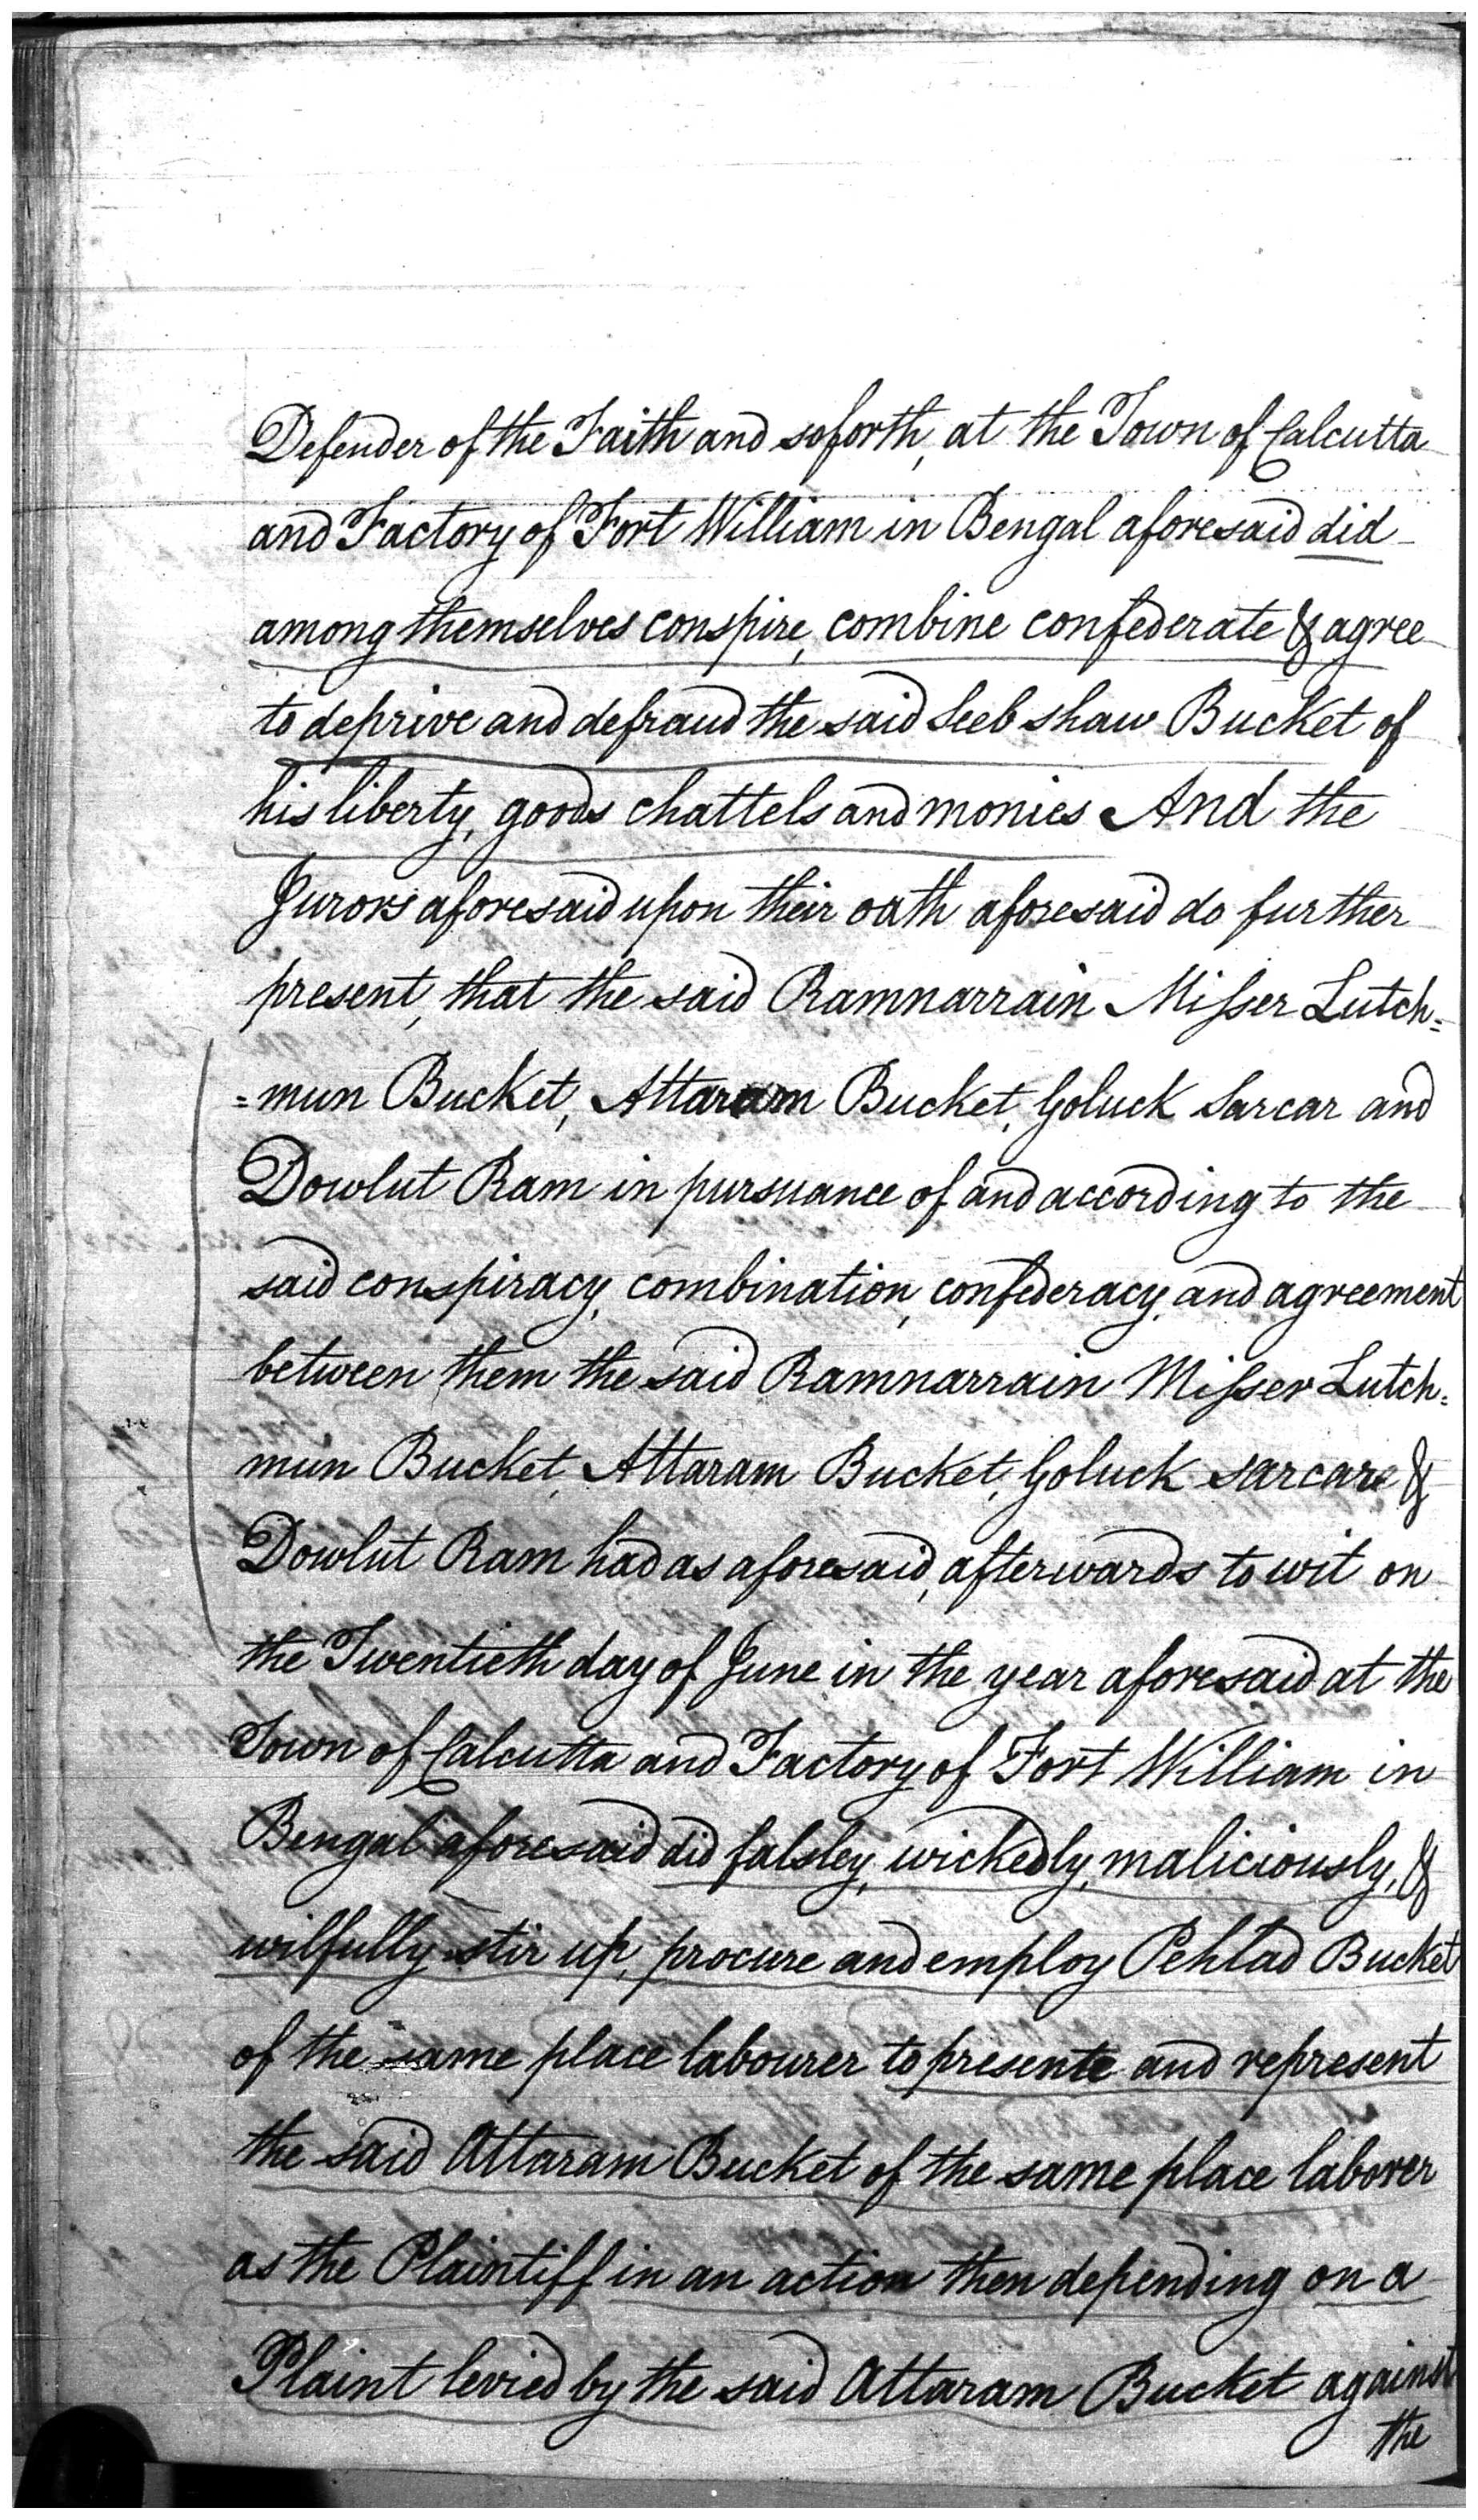 Defender of the Faith and soforth, at the Town of Calcutta
and Factory of Fort William in Bengal aforesaid did
among themselves conspire, combine confederate & agree
to deprive and defraud the said Seeb shaw Bucket of
his liberty, goods chattels and monies And the
Jurors aforesaid upon their oath aforesaid do further
present, that the said Ramnarrain Misser Lutch=
=mun Bucket, Attaram Bucket, Goluck Sarcar and
Dowlut Ram in pursuance of and according to the
said conspiracy, combination, confederacy, and agreement
between them the said Ramnarrain Misser Lutch=
mun Bucket, Attaram Bucket, Goluck sarcar &
Dowlut Ram had as aforesaid, afterwards to wit on
the Twentieth day of June in the year aforesaid at the
Town of Calcutta and Factory of Fort William in
Bengal aforesaid did falsley, wickedly, maliciously, &
wilfully stir up, procure and employ Pehlad Bucket
of the same place labourer to presente and represent
the said Attaram Bucket of the same place laborer
as the Plaintiff in an action then depending on a
Plaint levied by the said Attaram Bucket against
the